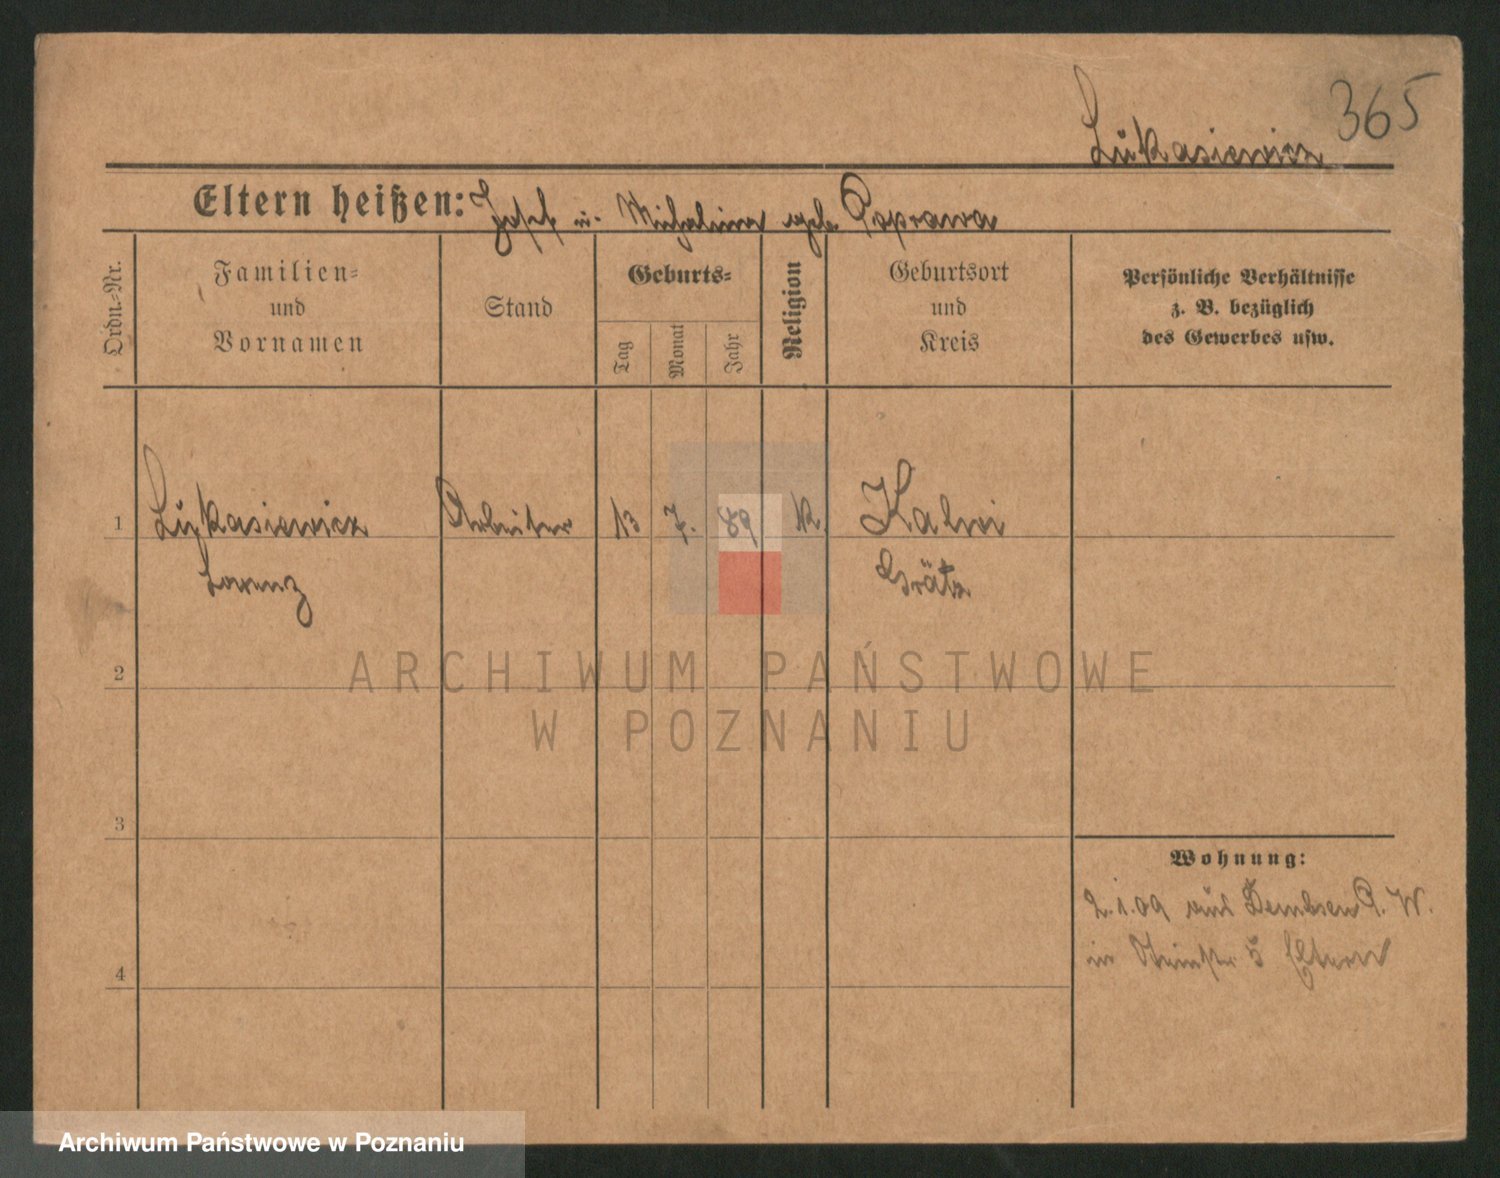 365
Lukasiewicz
Eltern heißen: Josef u. Michalina geb. Poprawa
Ordn.-Nr.
Familien-
und
Vornamen
Stand
Geburts-
Tag
Monat
Jahr
Religion
Geburtsort
und
Kreis
Persönliche Verhältnisse
z. B. bezüglich
des Gewerbes usw.
1 Lukasiewicz Arbeiter 13 7. 89 k.
Lorenz Grätz
2
ARCHIWUM PAŃSTWOWE
W POZNANIU
3
Wohnung:
2.1.09 aus Dembsen P. W.
in 5 Eltern
4
Archiwum Państwowe w Poznaniu